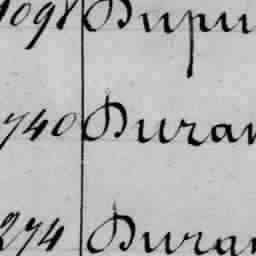 1098 Dupu
740 Duran
274 Duran